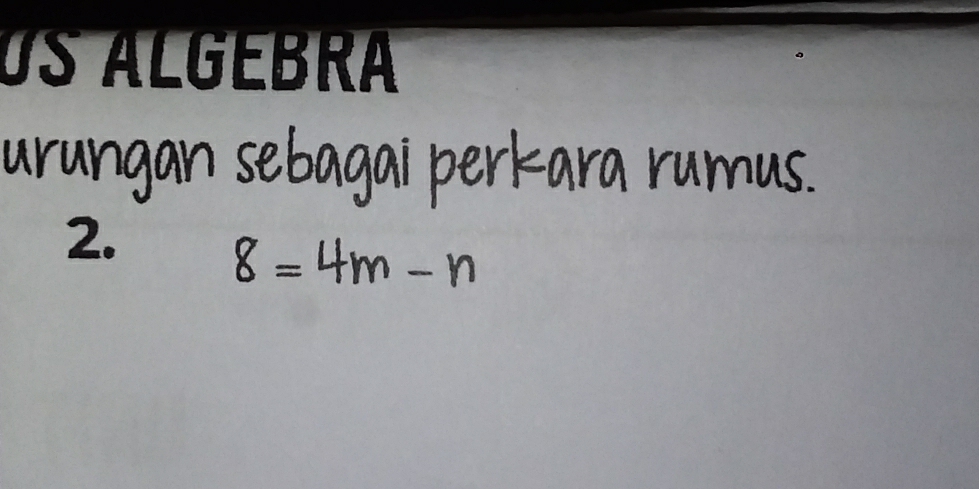 US ALGEBRA
urungan sebagai perkara rumus.
2. 8 = 4m - n